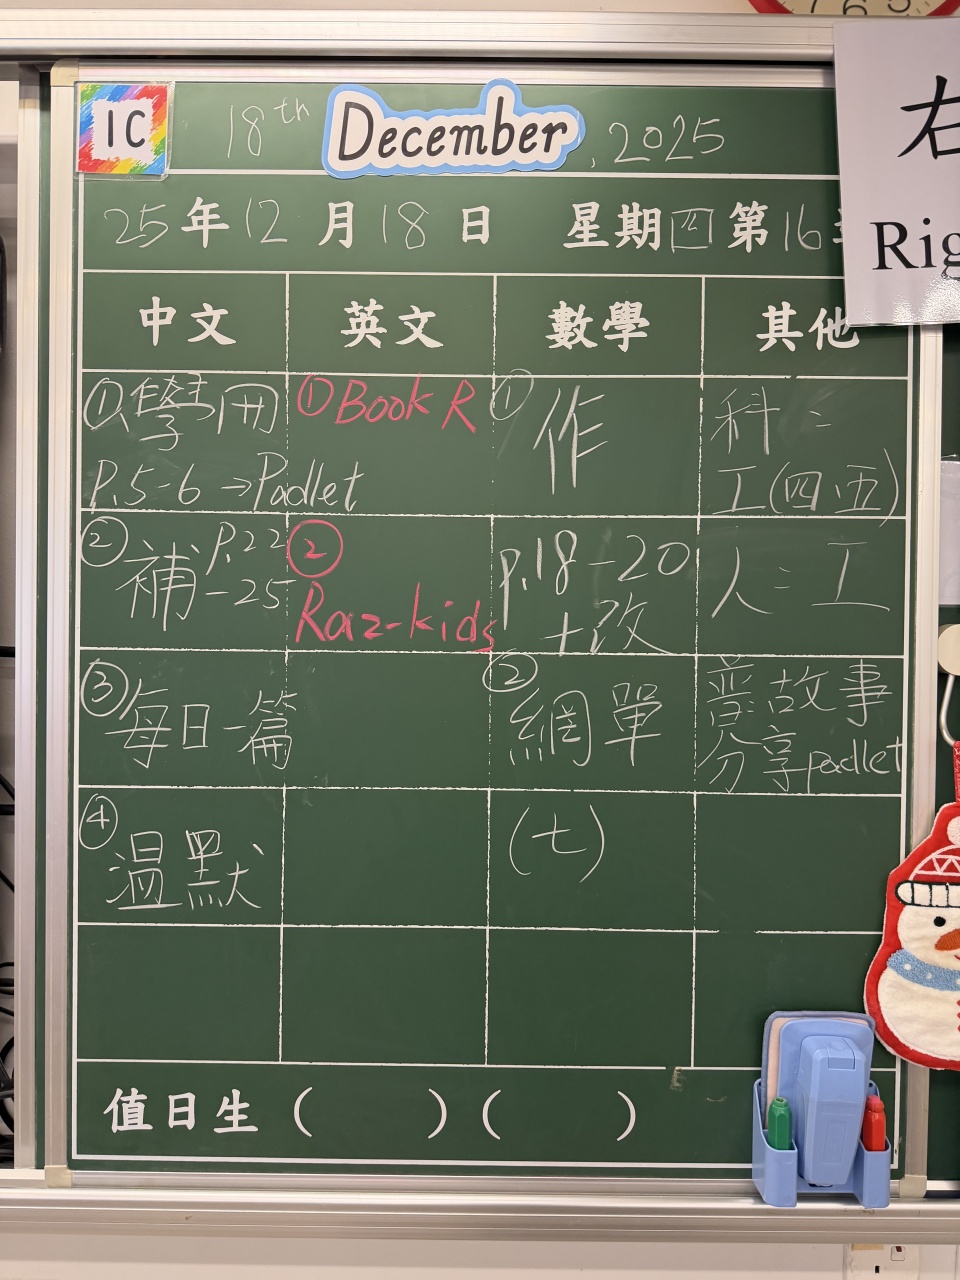 1C
18th December, 2025
25年12月18日 星期四 第16
中文 英文 數學 其他
①學冊
P.5-6→Padlet
①Book R
①作
科:
工(四、五)
②補 P.22
-25
②
Raz-kids
p.18-20
+改
人:工
③每日一篇
②網單
普故事
分享padlet
④溫默
(七)
值日生( )( )
右
Rig
7 6 5